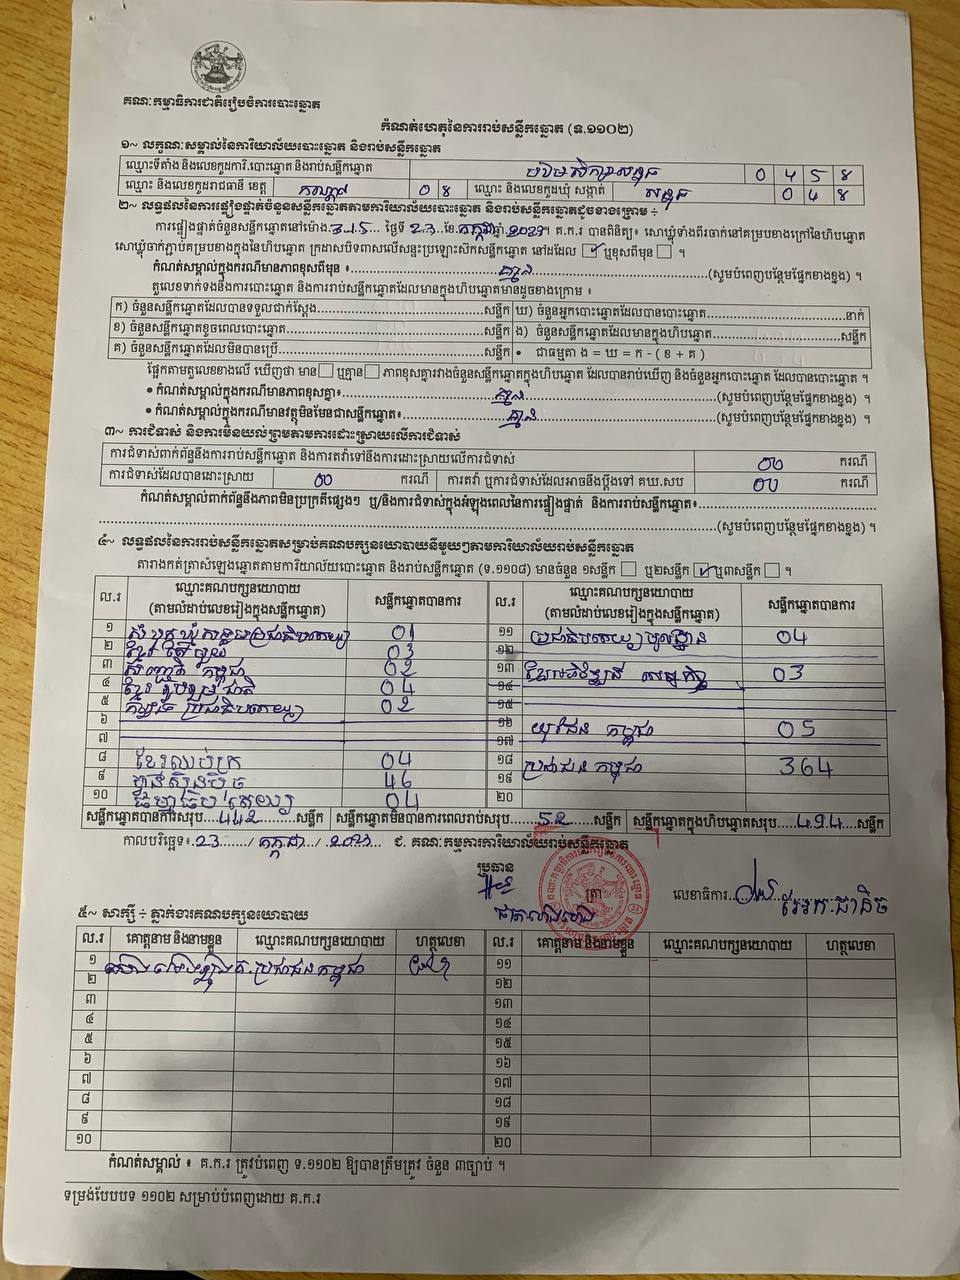 គណៈកម្មាធិការជាតិរៀបចំការបោះឆ្នោត
កំណត់ហេតុនៃការរាប់សន្លឹកឆ្នោត (ទ.១១០២)
១~ លក្ខណៈសម្គាល់នៃការិយាល័យបោះឆ្នោត និងរាប់សន្លឹកឆ្នោត
ឈ្មោះទីតាំង និងលេខកូដការិ.បោះឆ្នោត និងរាប់សន្លឹកឆ្នោត 0 4 5 8
ឈ្មោះ និងលេខកូដរាជធានី ខេត្ត កណ្តាល 0 8 ឈ្មោះ និងលេខកូដឃុំ សង្កាត់ 0 4 8
២~ លទ្ធផលនៃការផ្ទៀងផ្ទាត់ចំនួនសន្លឹកឆ្នោតតាមការិយាល័យបោះឆ្នោត និងរាប់សន្លឹកឆ្នោតដូចខាងក្រោម ÷
ការផ្ទៀងផ្ទាត់ចំនួនសន្លឹកឆ្នោតនៅម៉ោង.3:15... ថ្ងៃទី 23.ខែ.កក្កដា.ឆ្នាំ.២០២៣ គ.ក.រ បានពិនិត្យ៖ សោឃ្លុំទាំងពីរចាក់នៅគម្របខាងក្រៅនៃហិបឆ្នោត
សោឃ្លុំចាក់ភ្ជាប់គម្របខាងក្នុងនៃហិបឆ្នោត ក្រដាសបិទពាសលើសន្ទះប្រឡោះស៊កសន្លឹកឆ្នោត នៅដដែល ✓ ឬខុសពីមុន ។
កំណត់សម្គាល់ក្នុងករណីមានភាពខុសពីមុន ៖ គ្មាន (សូមបំពេញបន្ថែមផ្នែកខាងខ្នង) ។
តួលេខទាក់ទងនឹងការបោះឆ្នោត និងការរាប់សន្លឹកឆ្នោតដែលមានក្នុងហិបឆ្នោតមានដូចខាងក្រោម ៖
ក) ចំនួនសន្លឹកឆ្នោតដែលបានទទួលជាក់ស្តែង សន្លឹក ឃ) ចំនួនអ្នកបោះឆ្នោតដែលបានបោះឆ្នោត នាក់
ខ) ចំនួនសន្លឹកឆ្នោតខូចពេលបោះឆ្នោត សន្លឹក ង) ចំនួនសន្លឹកឆ្នោតដែលមានក្នុងហិបឆ្នោត សន្លឹក
គ) ចំនួនសន្លឹកឆ្នោតដែលមិនបានប្រើ សន្លឹក • ជាធម្មតា ង = ឃ = ក - ( ខ + គ )
ផ្អែកតាមតួលេខខាងលើ ឃើញថា មាន ឬគ្មាន ភាពខុសគ្នារវាងចំនួនសន្លឹកឆ្នោតក្នុងហិបឆ្នោត ដែលបានរាប់ឃើញ និងចំនួនអ្នកបោះឆ្នោត ដែលបានបោះឆ្នោត ។
• កំណត់សម្គាល់ក្នុងករណីមានភាពខុសគ្នា៖ គ្មាន (សូមបំពេញបន្ថែមផ្នែកខាងខ្នង) ។
• កំណត់សម្គាល់ក្នុងករណីមានវត្ថុមិនមែនជាសន្លឹកឆ្នោត៖ គ្មាន (សូមបំពេញបន្ថែមផ្នែកខាងខ្នង) ។
៣~ ការជំទាស់ និងការមិនយល់ព្រមតាមការដោះស្រាយលើការជំទាស់
ការជំទាស់ពាក់ព័ន្ធនឹងការរាប់សន្លឹកឆ្នោត និងការតវ៉ាទៅនឹងការដោះស្រាយលើការជំទាស់ 00 ករណី
ការជំទាស់ដែលបានដោះស្រាយ 00 ករណី ការតវ៉ា ឬការជំទាស់ដែលអាចនឹងប្តឹងទៅ គឃ.សប 00 ករណី
កំណត់សម្គាល់ពាក់ព័ន្ធនឹងភាពមិនប្រក្រតីផ្សេងៗ ឬ/និងការជំទាស់ក្នុងអំឡុងពេលនៃការផ្ទៀងផ្ទាត់ និងការរាប់សន្លឹកឆ្នោត៖
(សូមបំពេញបន្ថែមផ្នែកខាងខ្នង) ។
៤~ លទ្ធផលនៃការរាប់សន្លឹកឆ្នោតសម្រាប់គណបក្សនយោបាយនីមួយៗតាមការិយាល័យរាប់សន្លឹកឆ្នោត
តារាងកត់ត្រាសំឡេងឆ្នោតតាមការិយាល័យបោះឆ្នោត និងរាប់សន្លឹកឆ្នោត (ទ.១១០៨) មានចំនួន ១សន្លឹក ឬ២សន្លឹក ✓ ឬ៣សន្លឹក ។
ល.រ ឈ្មោះគណបក្សនយោបាយ (តាមលំដាប់លេខរៀងក្នុងសន្លឹកឆ្នោត) សន្លឹកឆ្នោតបានការ ល.រ ឈ្មោះគណបក្សនយោបាយ (តាមលំដាប់លេខរៀងក្នុងសន្លឹកឆ្នោត) សន្លឹកឆ្នោតបានការ
១ សំបុកឃ្មុំសង្គមប្រជាធិបតេយ្យ 01 ១១ ប្រជាធិបតេយ្យមូលដ្ឋាន 04
២ ខ្មែរតែមួយ 03 ១២
៣ កម្ពុជា 02 ១៣ 03
៤ ខ្មែររួបរួមជាតិ 04 ១៤
៥ កម្លាំងប្រជាធិបតេយ្យ 02 ១៥
៦ ១៦ យុវជន កម្ពុជា 05
៧ ១៧
៨ ខ្មែរឈប់ក្រ 04 ១៨ ប្រជាជនកម្ពុជា 364
៩ ហ៊្វុនស៊ិនប៉ិច 46 ១៩
១០ ធម្មាធិបតេយ្យ 04 ២០
សន្លឹកឆ្នោតបានការសរុប 442 សន្លឹក សន្លឹកឆ្នោតមិនបានការពេលរាប់សរុប 52 សន្លឹក សន្លឹកឆ្នោតក្នុងហិបឆ្នោតសរុប 494 សន្លឹក
កាលបរិច្ឆេទ៖ 23 / កក្កដា / 2023 ជ. គណៈកម្មការការិយាល័យរាប់សន្លឹកឆ្នោត
ប្រធាន
ត្រា លេខាធិការ
៥~ សាក្សី ÷ ភ្នាក់ងារគណបក្សនយោបាយ
ល.រ គោត្តនាម និងនាមខ្លួន ឈ្មោះគណបក្សនយោបាយ ហត្ថលេខា ល.រ គោត្តនាម និងនាមខ្លួន ឈ្មោះគណបក្សនយោបាយ ហត្ថលេខា
១ គ.ប្រជាជនកម្ពុជា ១១
២ ១២
៣ ១៣
៤ ១៤
៥ ១៥
៦ ១៦
៧ ១៧
៨ ១៨
៩ ១៩
១០ ២០
កំណត់សម្គាល់ ៖ គ.ក.រ ត្រូវបំពេញ ទ.១១០២ ឱ្យបានត្រឹមត្រូវ ចំនួន ៣ច្បាប់ ។
ទម្រង់បែបបទ ១១០២ សម្រាប់បំពេញដោយ គ.ក.រ